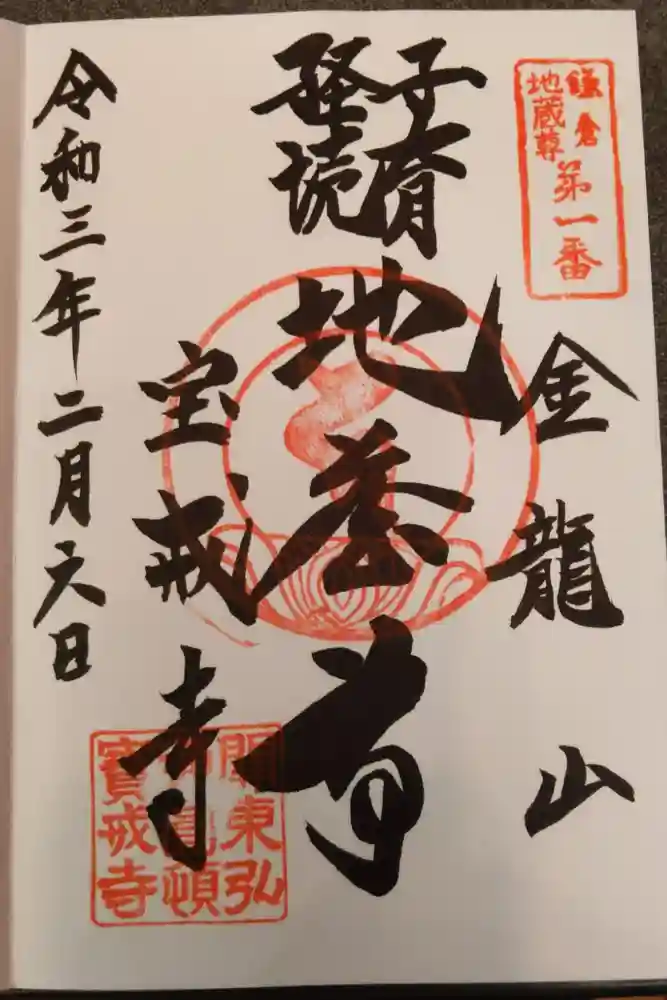 鎌倉
地蔵尊
第一番
金龍山
子育
経読
地蔵尊
宝戒寺
令和三年二月六日
關東弘
頓
寶戒寺